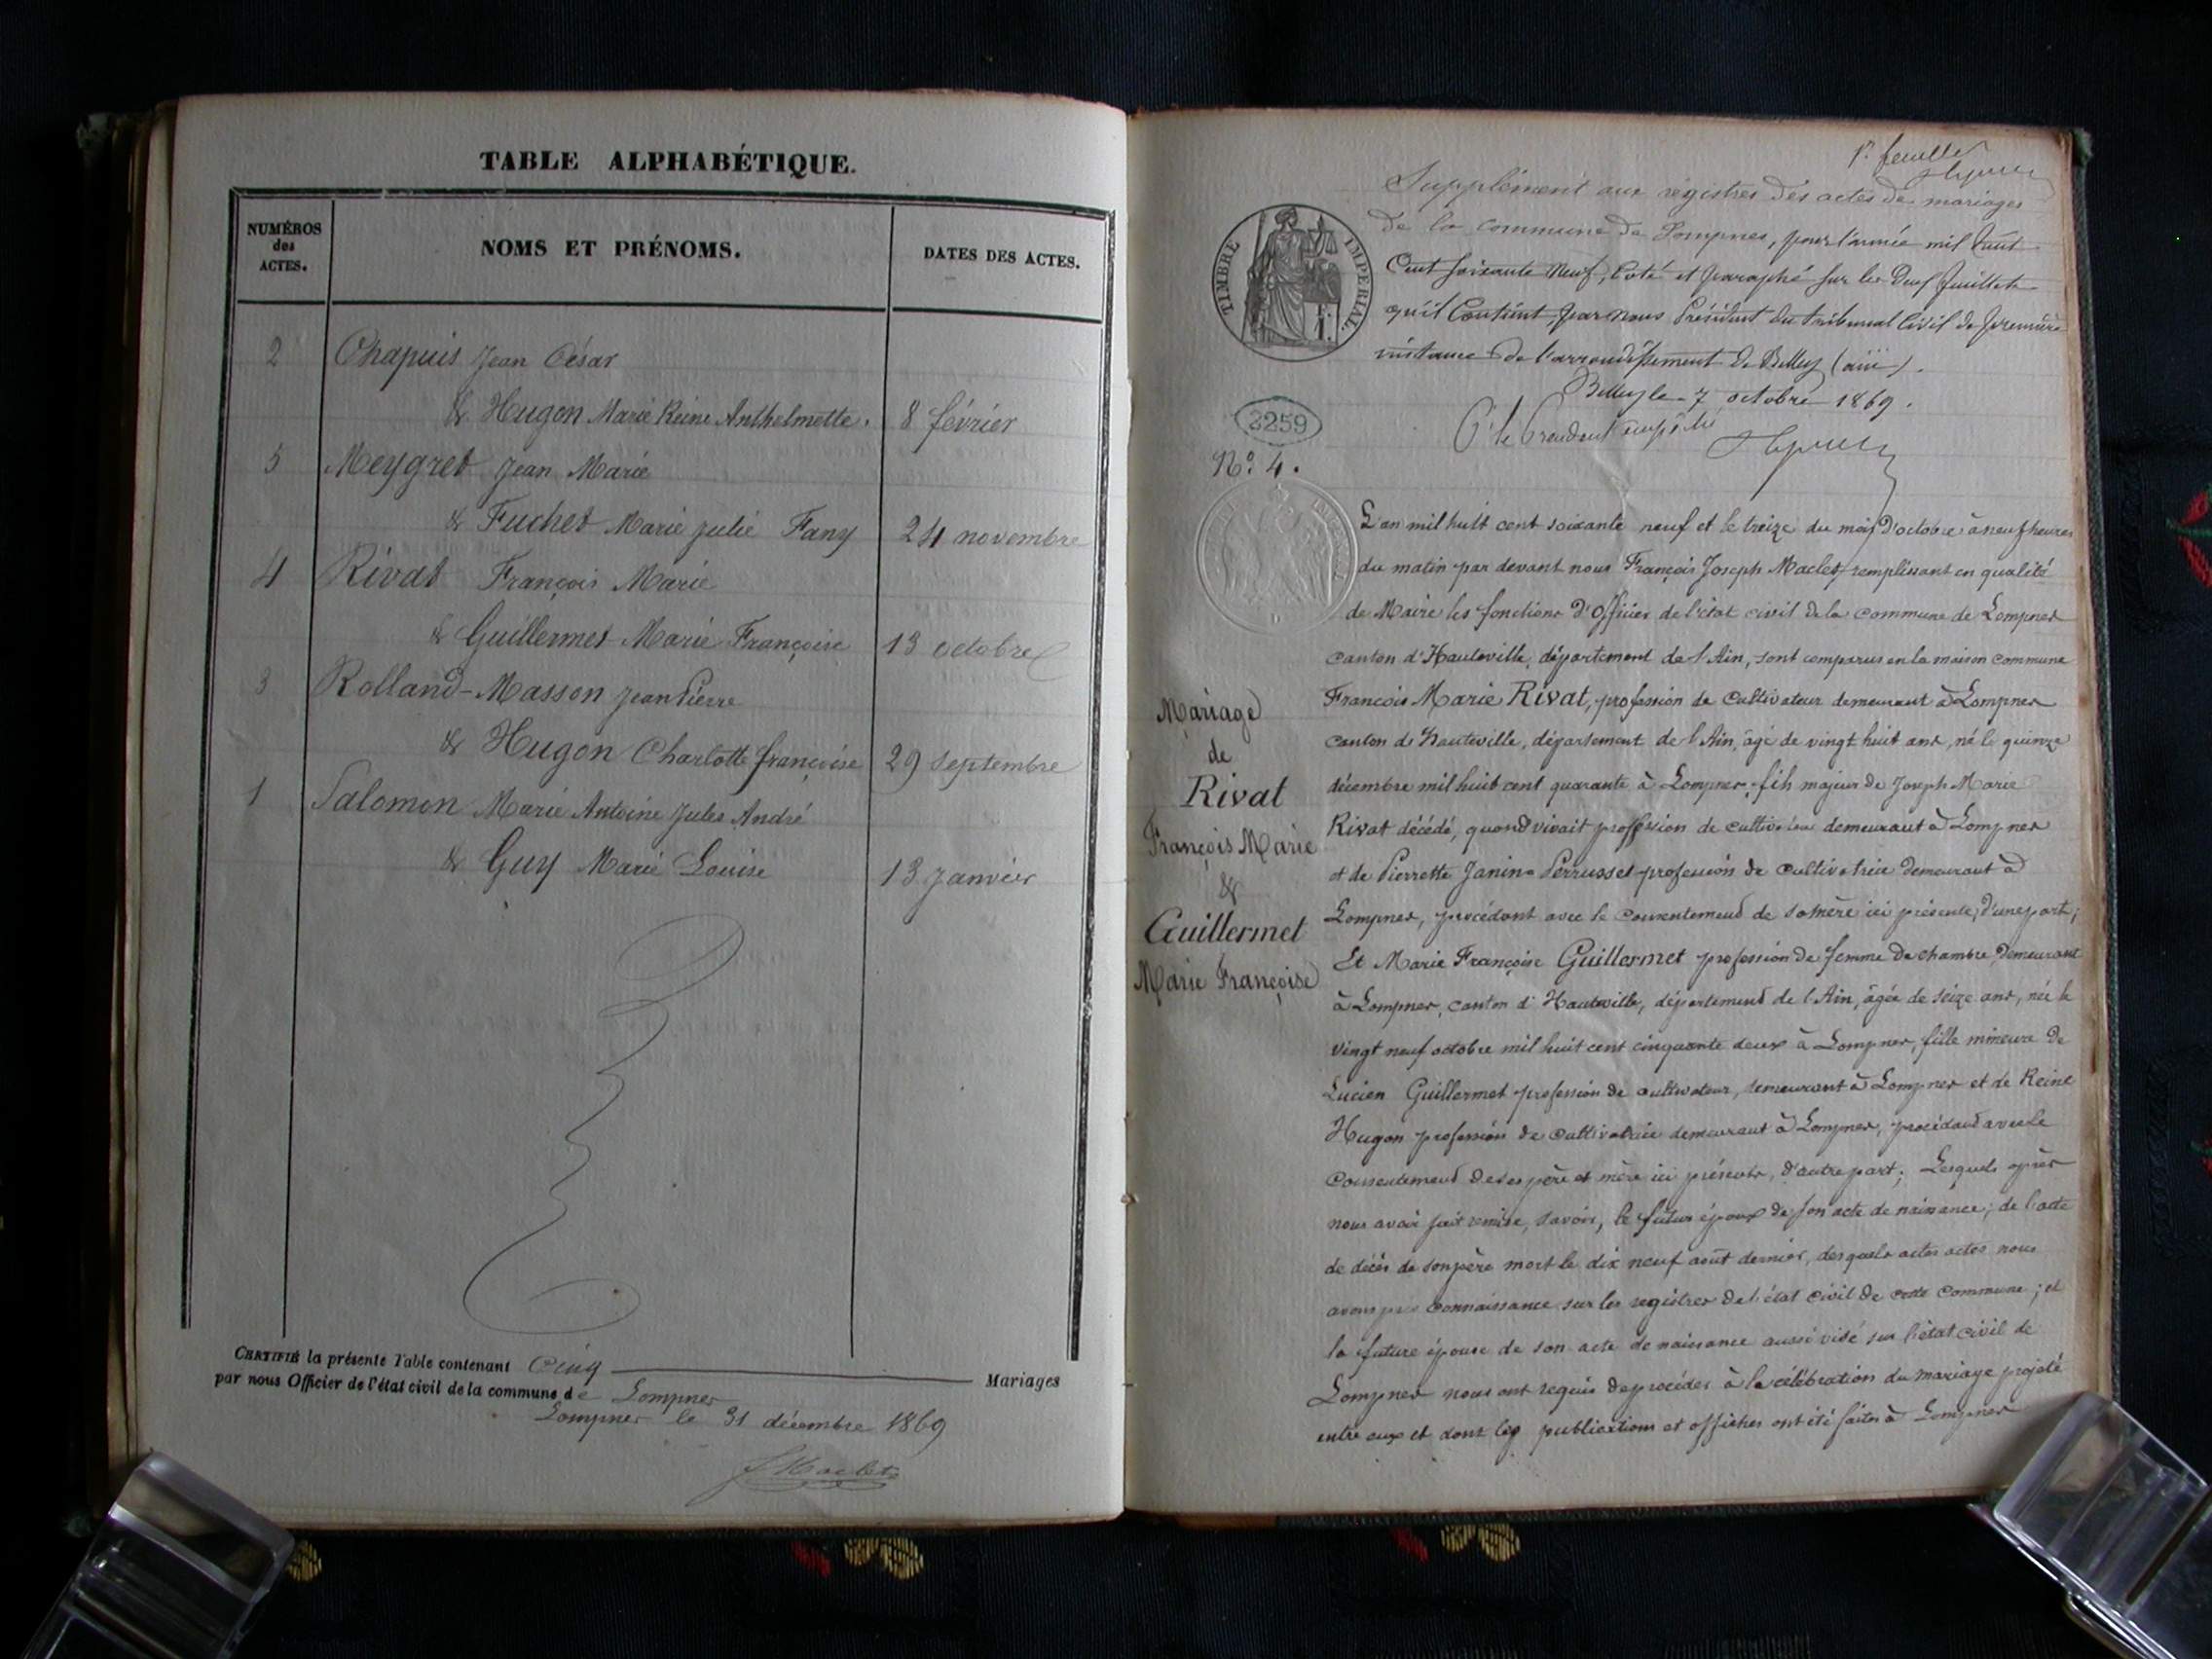 TABLE ALPHABÉTIQUE.
NUMÉROS
des
ACTES.
NOMS ET PRÉNOMS.
DATES DES ACTES.
2 Chapuis Jean César
& Hugon Marie Reine Anthelmette. 8 février
5 Meygret Jean Marie
& Fuchet Marie Julie Fany 24 novembre
4 Rivat François Marie
& Guillermet Marie Françoise 13 octobre
3 Rolland-Masson Jean Pierre
& Hugon Charlotte françoise 29 septembre
1 Salomon Marie Antoine Jules André
& Guy Marie Louise 13 Janvier
CERTIFIÉ la présente Table contenant Cinq Mariages
par nous Officier de l'état civil de la commune de Lompnes
Lompnes le 31 décembre 1869
J Maclet
1re feuille
Supplément aux régistres des actes de mariages
de la commune de Lompnes, pour l'année mil huit
Cent soixante Neuf, Coté et paraphé sur les Deux feuillets
qu'il Contient, par nous Président du tribunal Civil de première
instance de l'arrondissement de Belley (ain).
Belley le 7 octobre 1869.
Pr le Président empêché
TIMBRE IMPÉRIAL.
2259
No. 4.
Mariage
de
Rivat
François Marie
&
Guillermet
Marie Françoise
L'an mil huit cent soixante neuf et le treize du mois d'octobre à neuf heures
du matin par devant nous François Joseph Maclet remplissant en qualité
de Maire les fonctions d'Officier de l'état civil de la commune de Lompnes
canton d'Hauteville, département de l'Ain, sont comparus en la maison commune
François Marie Rivat, profession de Cultivateur demeurant à Lompnes
canton de Hauteville, département de l'Ain, âgé de vingt huit ans, né le quinze
décembre mil huit cent quarante à Lompnes, fils majeur de Joseph Marie
Rivat décédé, quand vivait profession de cultivateur demeurant à Lompnes
et de Pierrette Janin-Perrusset profession de Cultivatrice demeurant à
Lompnes, procédant avec le consentement de sa mère ici présente, d'une part;
Et Marie Françoise Guillermet profession de femme de chambre, demeurant
à Lompnes, canton d'Hauteville, département de l'Ain, âgée de seize ans, née le
vingt neuf octobre mil huit cent cinquante deux à Lompnes, fille mineure de
Lucien Guillermet profession de cultivateur, demeurant à Lompnes et de Reine
Hugon profession de Cultivatrice demeurant à Lompnes, procédant avec le
consentement de ses père et mère ici présents, d'autre part; Lesquels après
nous avoir fait remise, savoir, le futur époux de son acte de naissance; de l'acte
de décès de son père mort le dix neuf août dernier, desquels actes actes nous
avons pris connaissance sur les registres de l'état civil de cette commune; et
la future épouse de son acte de naissance aussi visé sur l'état civil de
Lompnes nous ont requis de procéder à la célébration du mariage projeté
entre eux et dont les publications et affiches ont été faites à Lompnes